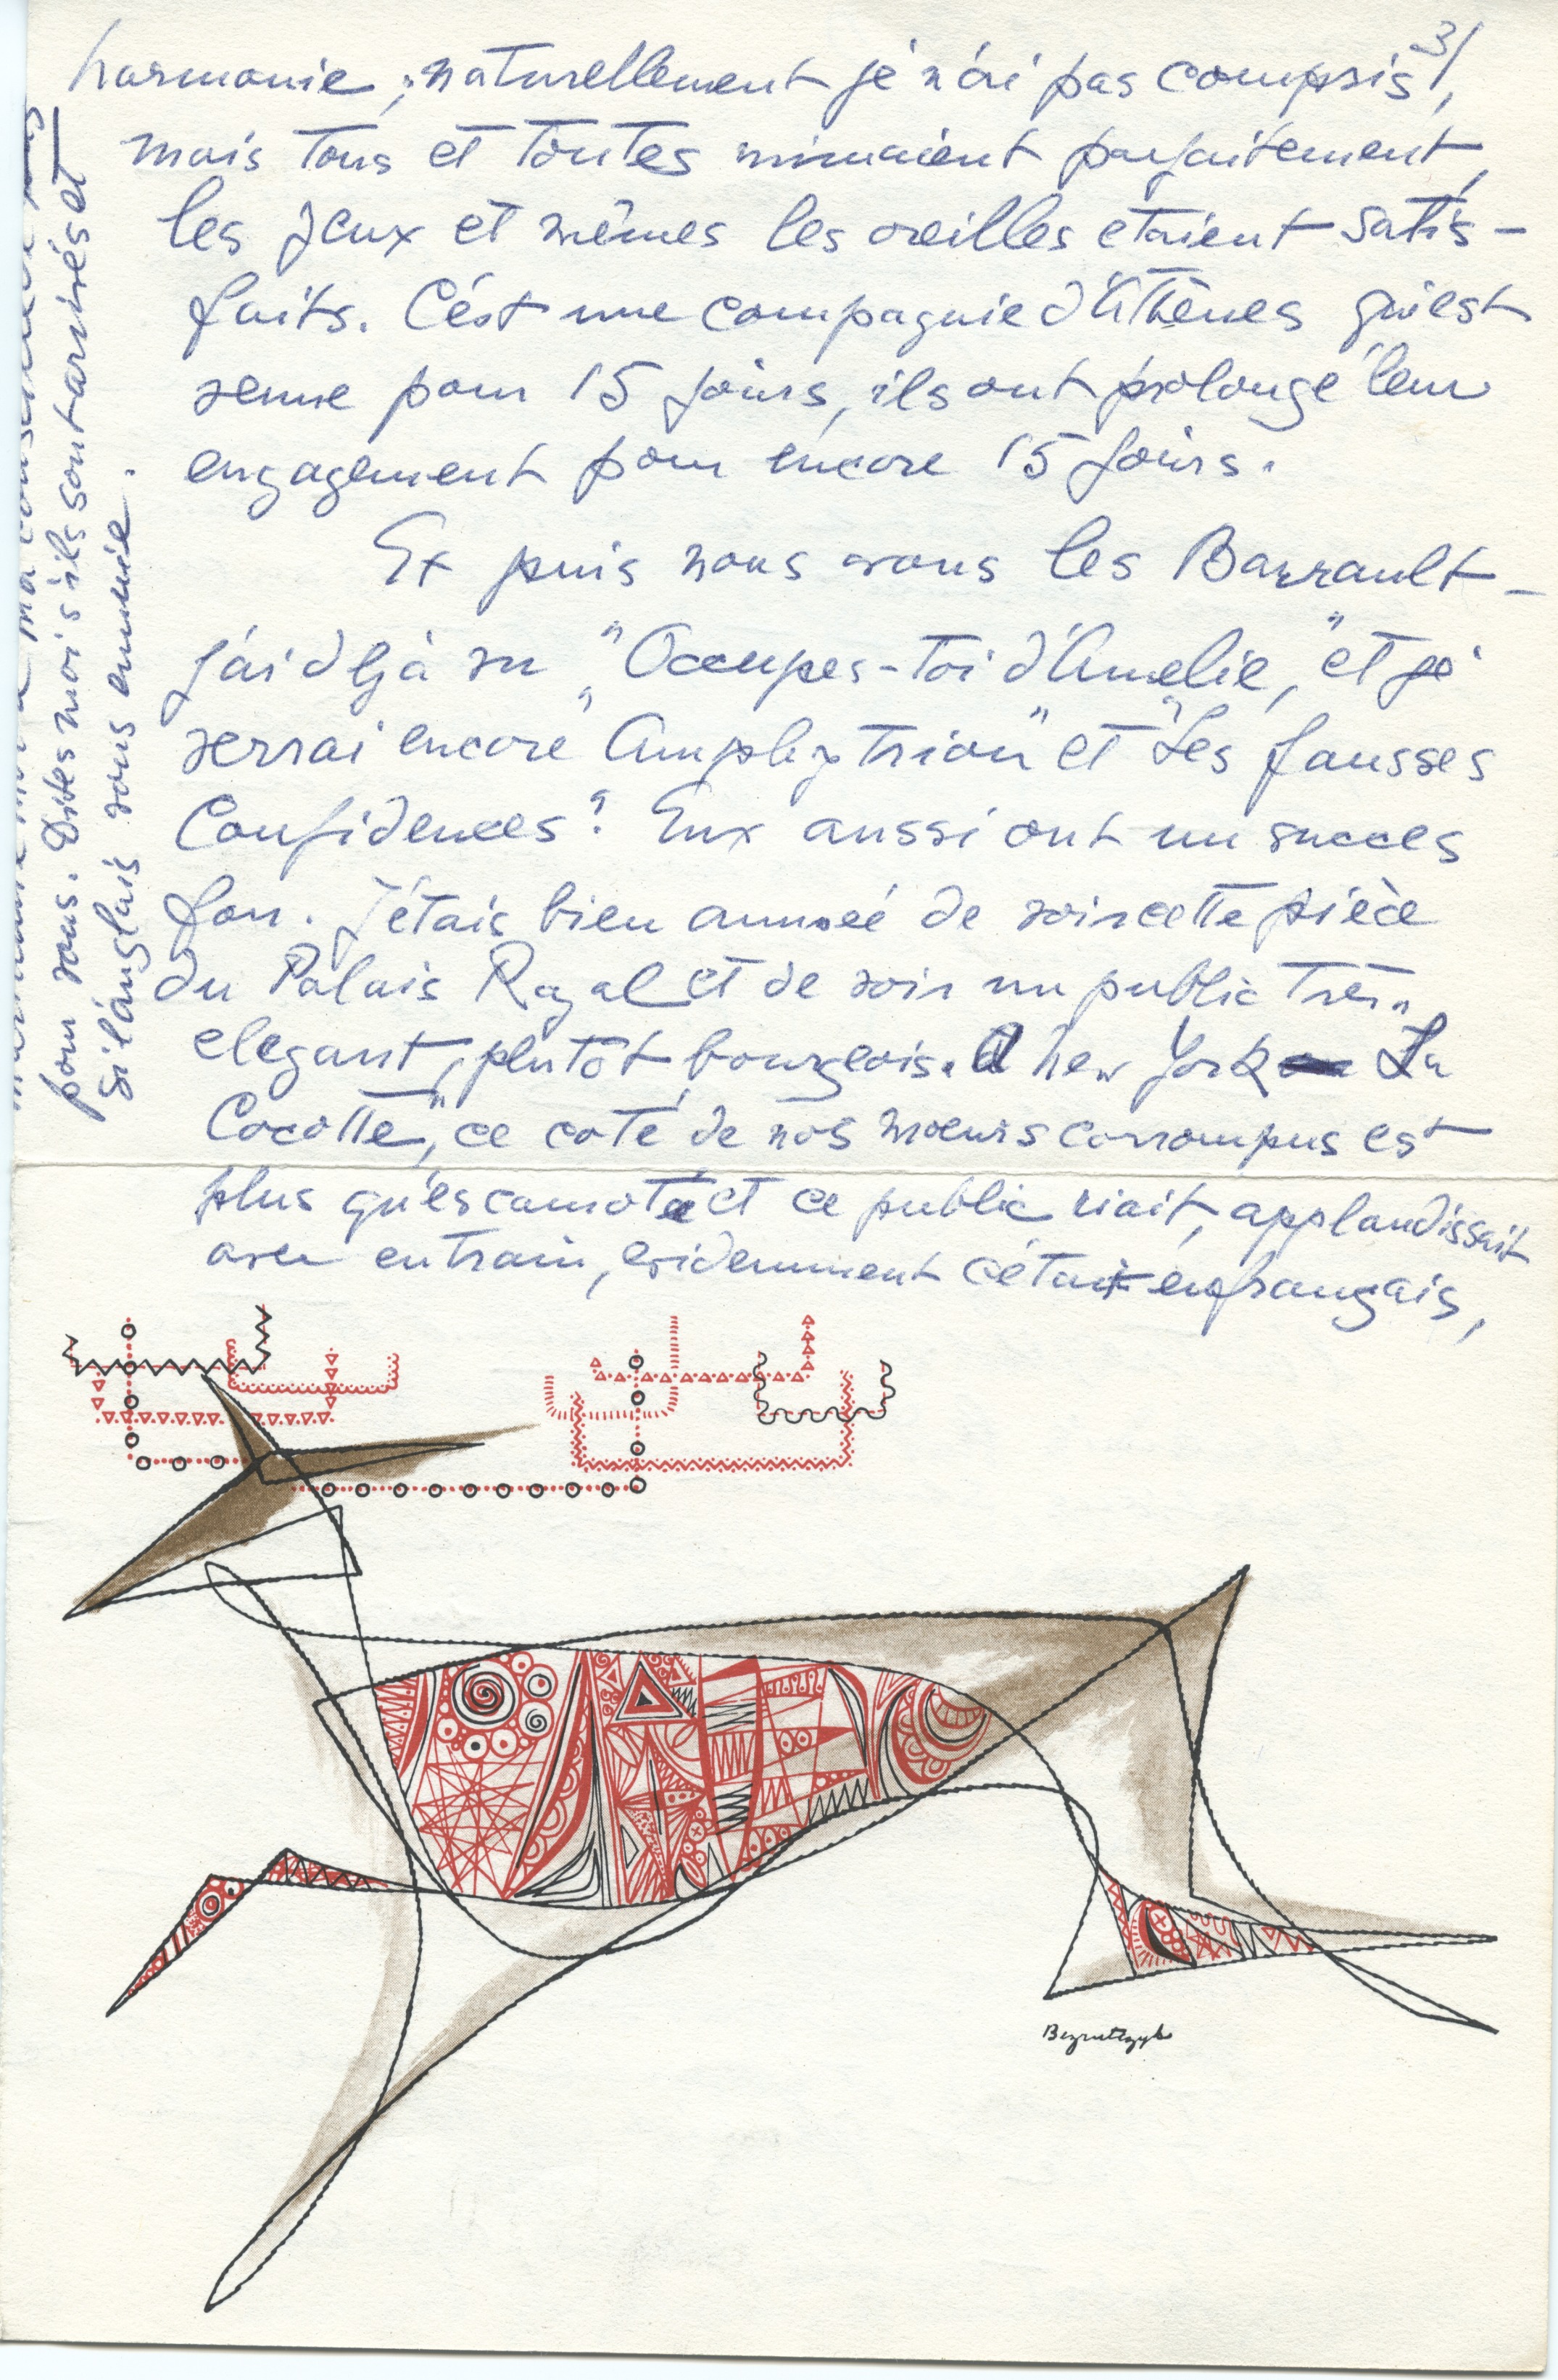 3/
harmonie, naturellement je n'ai pas compris,
mais tous et toutes mimaient parfaitement,
les yeux et mêmes les oreilles etaient satis-
faits. C'ést une compagnie d'Athènes qui est
venue pour 15 jours, ils ont prolongé leur
engagement pour encore 15 jours.
Et puis nous avons les Barrault -
j'ai dejà vu "Occupes-toi d'Amelie," et je
verrai encore "Amphytrion" et "Les fausses
Confidences". Eux aussi ont un succes
fou. J'étais bien amusée de voir cette pièce
du Palais Royal et de voir un public très
elegant, plutôt bourgeois. A New York "La
Cocotte", ce coté de nos moeurs corrompus est
plus qu'escamoté et ce public riait, applaudissait
avec entrain, evidemment c'était en français,
pour vous. Dites moi s'ils sont arrivés et
si l'anglais vous ennuie.